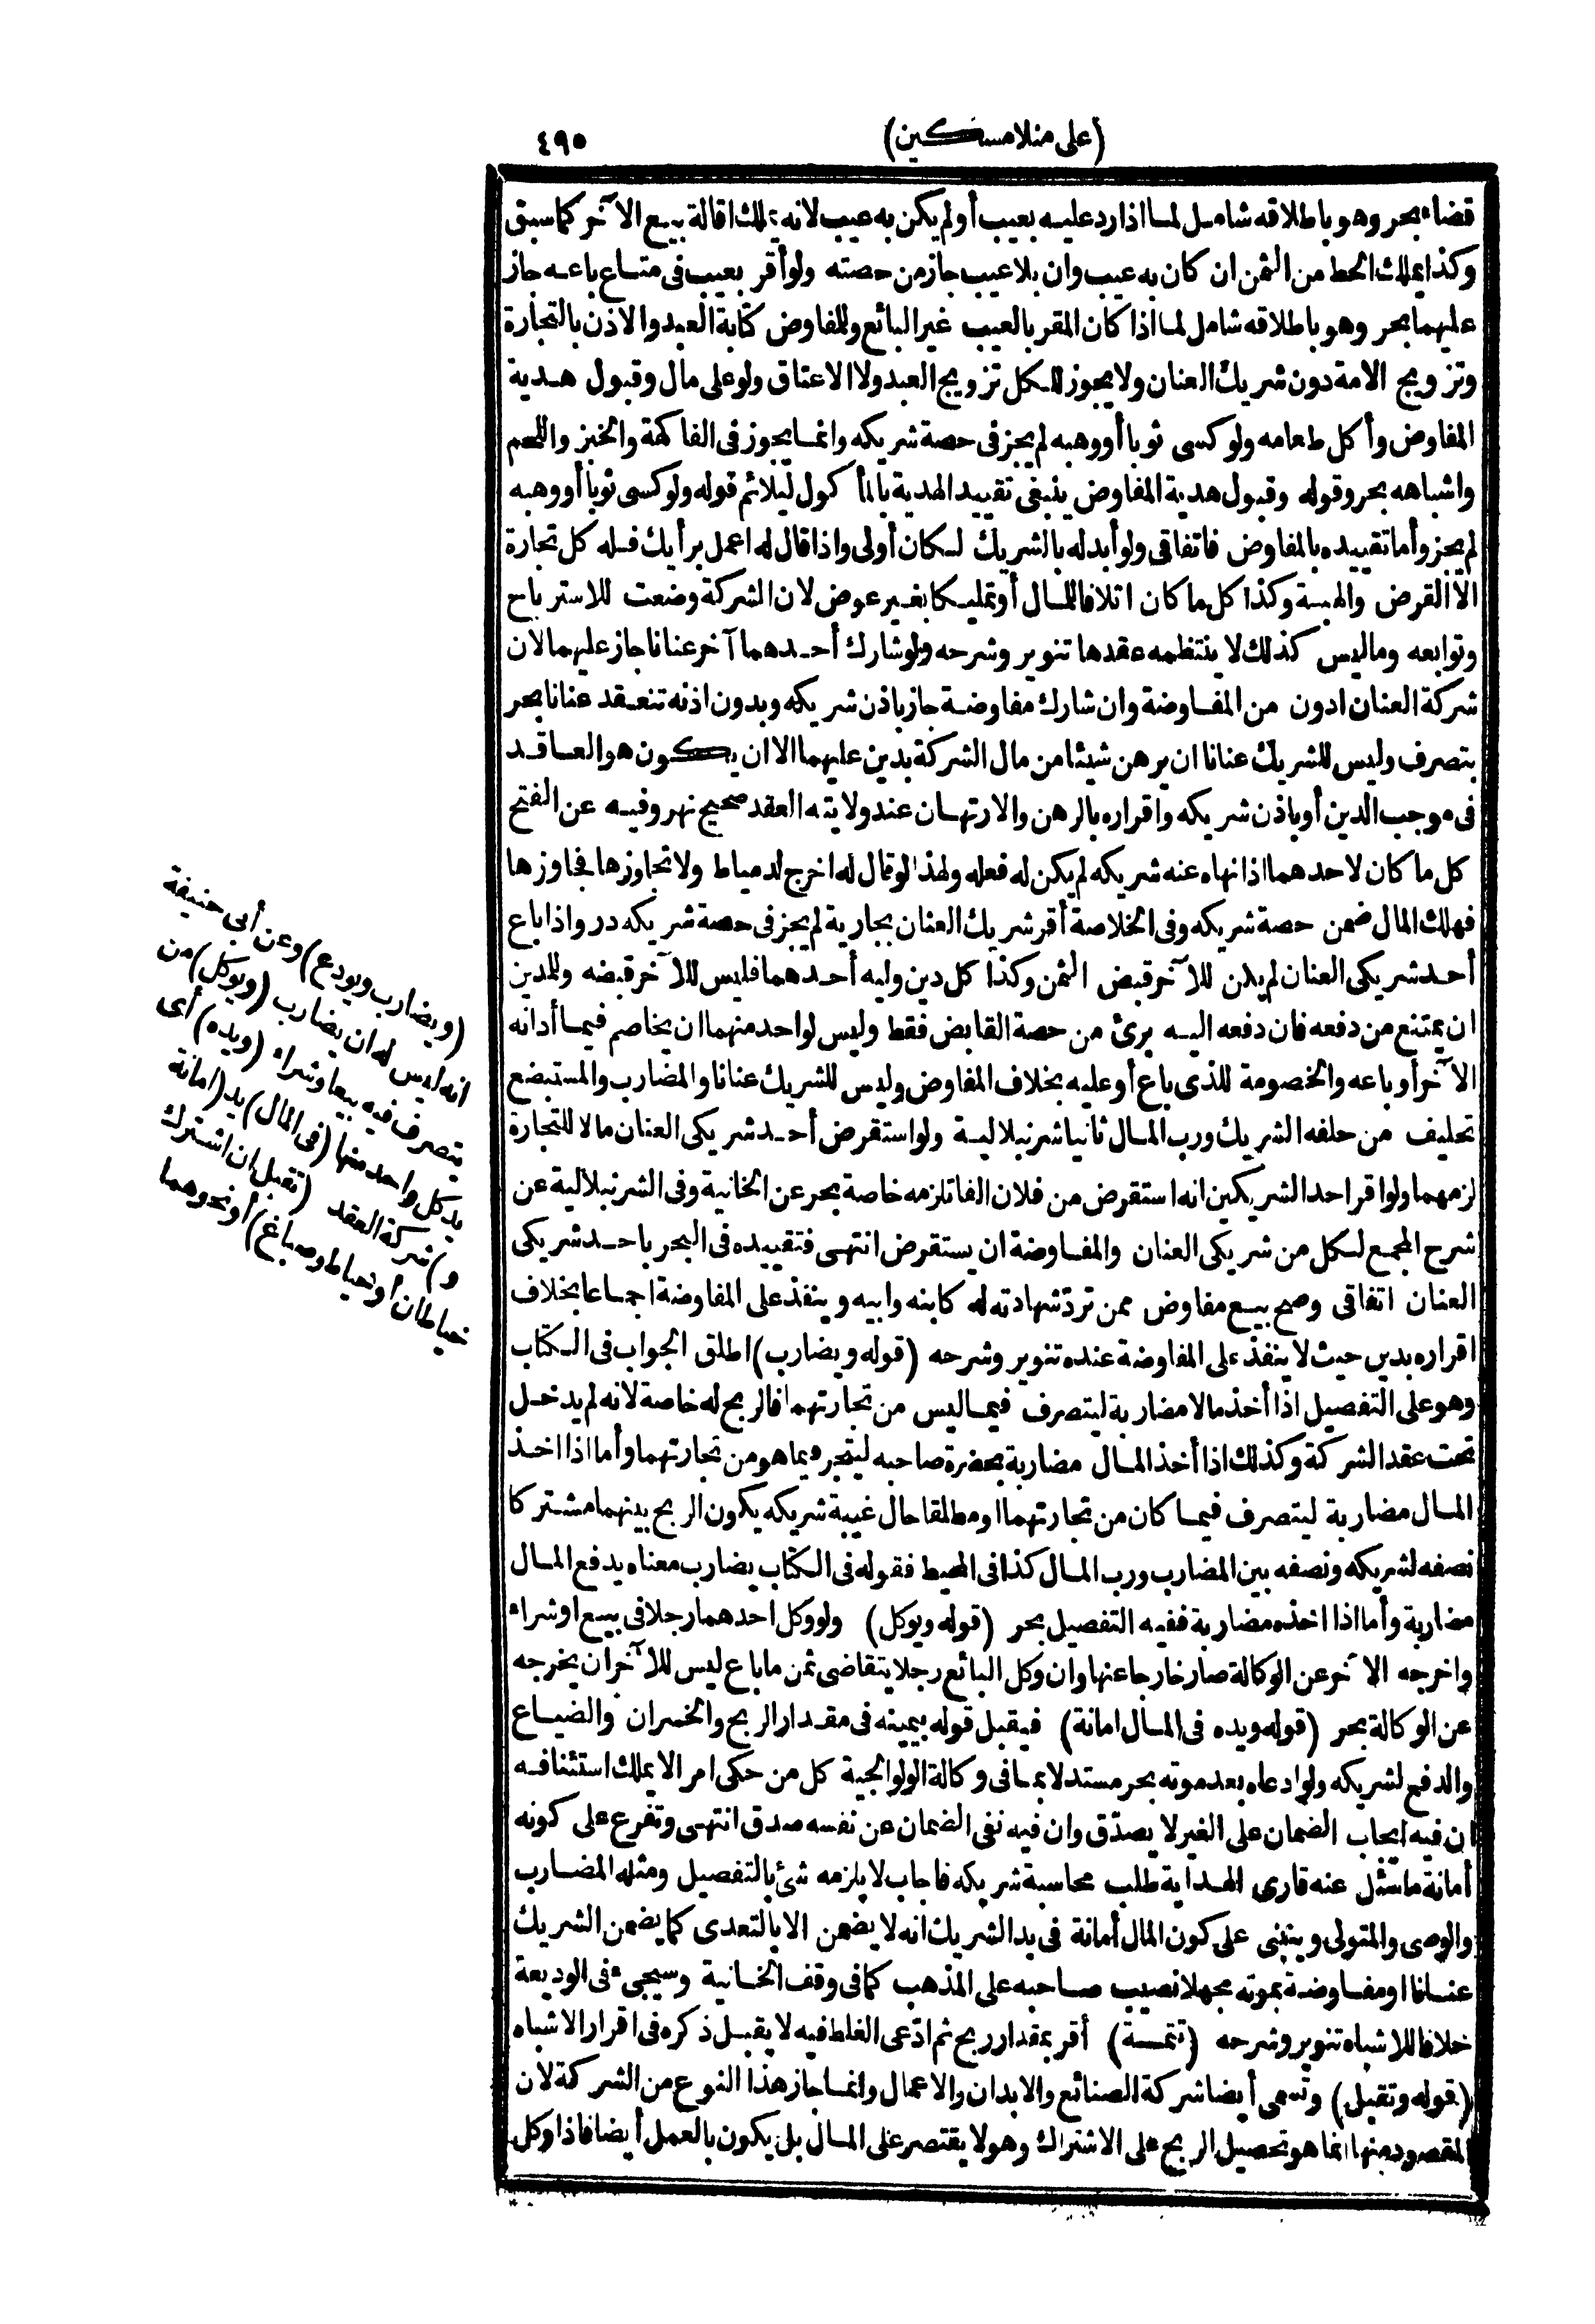 (على منلا مسكين) ٤٩٥
قضاء بحر وهو باطلاقه شامل لما اذا رد عليه بعيب أو لم يكن به عيب لانه يملك اقالة بيع الآخر كما سبق
وكذا يملك الحط من الثمن ان كان به عيب وان بلا عيب جاز من حصته ولو أقر بعيب فى متاع باعه جاز
عليهما بحر وهو باطلاقه شامل لما اذا كان المقر بالعيب غير البائع وللمفاوض كتابة العبد والاذن بالتجارة
وتزويج الامة دون شريك العنان ولا يجوز للكل تزويج العبد ولا الاعتاق ولو على مال وقبول هدية
المفاوض وأكل طعامه ولو كسى ثوبا أو وهبه لم يجز فى حصة شريكه وانما يجوز فى الفاكهة والخبز واللحم
واشباهه بحر وقوله وقبول هدية المفاوض ينبغى تقييد الهدية بالمأكول ليلائم قوله ولو كسى ثوبا أو وهبه
لم يجز وأما تقييده بالمفاوض فاتفاقى ولو أبدله بالشريك لكان أولى واذا قال له اعمل برأيك فله كل تجارة
الا القرض والهبة وكذا كل ما كان اتلافا للمال أو تمليكا بغير عوض لان الشركة وضعت للاسترباح
وتوابعه وما ليس كذلك لا ينتظمه عقدها تنوير وشرحه ولو شارك أحدهما آخر عنانا جاز عليهما لان
شركة العنان ادون من المفاوضة وان شارك مفاوضة جاز باذن شريكه وبدون اذنه تنعقد عنانا بحر
بتصرف وليس للشريك عنانا ان يرهن شيئا من مال الشركة بدين عليهما الا ان يكون هو العاقد
فى موجب الدين أو باذن شريكه واقراره بالرهن والارتهان عند ولايته العقد صحيح نهر وفيه عن الفتح
كل ما كان لاحدهما اذا نهاه عنه شريكه لم يكن له فعله ولهذا لو قال له اخرج لدمياط ولا تجاوزها فجاوزها
فهلك المال ضمن حصة شريكه وفى الخلاصة أقر شريك العنان بجارية لم يجز فى حصة شريكه درر واذا باع
أحد شريكى العنان لم يكن للآخر قبض الثمن وكذا كل دين وليه أحدهما فليس للآخر قبضه وللمدين
ان يمتنع من دفعه فان دفعه اليه برئ من حصة القابض فقط وليس لواحد منهما ان يخاصم فيما أدانه
الآخر أو باعه والخصومة للذى باع أو عليه بخلاف المفاوض وليس للشريك عنانا والمضارب والمستبضع
تحليف من حلفه الشريك ورب المال ثانيا شرنبلالية ولو استقرض أحد شريكى العنان مالا للتجارة
لزمهما ولو اقر احد الشريكين انه استقرض من فلان الفا تلزمه خاصة بحر عن الخانية وفى الشرنبلالية عن
شرح المجمع لكل من شريكى العنان والمفاوضة ان يستقرض انتهى فتقييده فى البحر باحد شريكى
العنان اتفاقى وصح بيع مفاوض ممن تردّ شهادته له كابنه وابيه وينفذ على المفاوضة اجماعا بخلاف
اقراره بدين حيث لا ينفذ على المفاوضة عنده تنوير وشرحه (قوله ويضارب) اطلق الجواب فى الكتاب
وهو على التفصيل اذا أخذ مالا مضاربة ليتصرف فيما ليس من تجارتهما فالربح له خاصة لانه لم يدخل
تحت عقد الشركة وكذلك اذا أخذ المال مضاربة بحضرة صاحبه ليتجر فيما هو من تجارتهما وأما اذا اخذ
المال مضاربة ليتصرف فيما كان من تجارتهما او مطلقا حال غيبة شريكه يكون الربح بينهما مشتركا
نصفه لشريكه ونصفه بين المضارب ورب المال كذا فى المحيط فقوله فى الكتاب يضارب معناه يدفع المال
مضاربة وأما اذا اخذه مضاربة ففيه التفصيل بحر (قوله ويوكل) ولو وكل احدهما رجلا فى بيع او شراء
واخرجه الآخر عن الوكالة صار خارجا عنها وان وكل البائع رجلا يتقاضى ثمن ما باع ليس للآخر ان يخرجه
عن الوكالة بحر (قوله ويده فى المال امانة) فيقبل قوله بيمينه فى مقدار الربح والخسران والضياع
والدفع لشريكه ولو ادعاه بعد موته بحر مستدلا بما فى وكالة الولوالجية كل من حكى امرا لا يملك استئنافه
ان فيه ايجاب الضمان على الغير لا يصدّق وان فيه نفى الضمان عن نفسه صدق انتهى وتفرع على كونه
أمانة ما سئل عنه قارى الهداية طلب محاسبة شريكه فاجاب لا يلزمه شئ بالتفصيل ومثله المضارب
والوصى والمتولى وينبنى على كون المال أمانة فى يد الشريك انه لا يضمن الا بالتعدى كما يضمن الشريك
عنانا او مفاوضة بموته مجهلا نصيب صاحبه على المذهب كما فى وقف الخانية وسيجىء فى الوديعة
خلافا للاشباه تنوير وشرحه (تتمة) أقر بمقدار ربح ثم ادّعى الغلط فيه لا يقبل ذكره فى اقرار الاشباه
(قوله وتقبل) وتسمى أيضا شركة الصنائع والابدان والاعمال وانما جاز هذا النوع من الشركة لان
المقصود منها انما هو تحصيل الربح على الاشتراك وهو لا يقتصر على المال بل يكون بالعمل أيضا فاذا وكل
(ويضارب ويودع) وعن أبى حنيفة
انه ليس له ان يضارب (ويوكل) من
يتصرف فيه بيعا وشراء (ويده) أى
يد كل واحد منها (فى المال) يد (امانة
و) شركة العقد (تقبل ان اشترك
خياطان أو خياط وصباغ) أو نحوهما